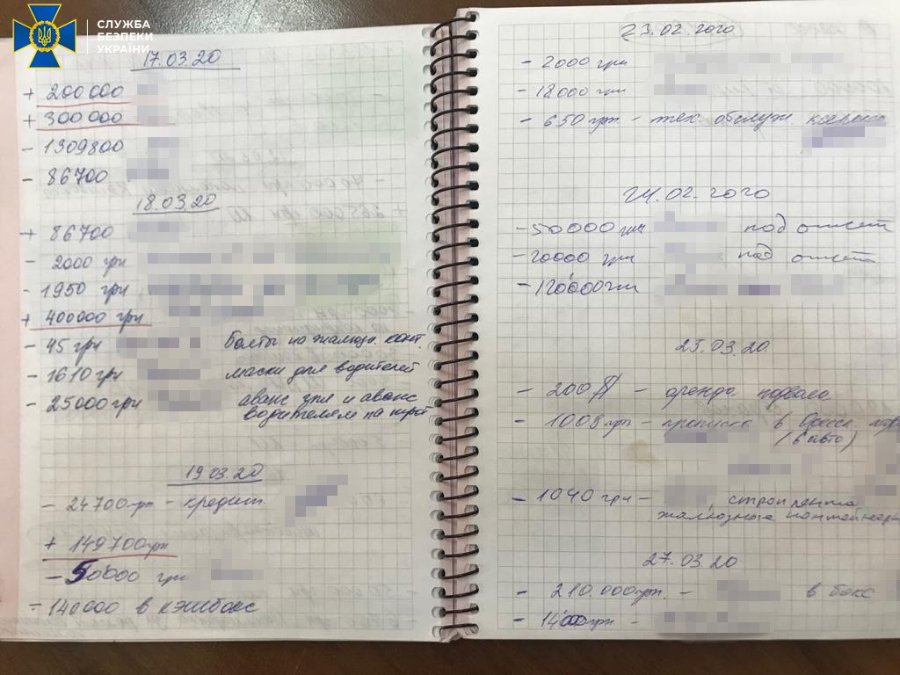 СЛУЖБА
БЕЗПЕКИ
УКРАЇНИ
17.03.20
+ 200 000
+ 300 000
- 1309800
- 86700
18.03.20
+ 86700
- 2000 грн
- 1950 грн
+ 400000 грн
- 45 грн болты на жалюзи. конт.
- 1610 грн маски для водителей
- 25000 грн аванс зпл и аванс
водителем на
19.03.20
- 24700 грн - кредит
+ 149700 грн
- 50000 грн
- 140000 в кэшбокс
23.02.2020
- 2000 грн
- 18000 грн
- 650 грн - тех обслуж
24.02.2020
- 50000 грн под отчет
- 20000 грн под отчет
- 120000 грн
25.03.20
- 200 - аренда подвала
- 1008 грн - прописка в
(6 авто)
- 1040 грн - строп лента
жалюзные контейнеры
27.03.20
- 210.000 грн - в бокс
- 14000 грн -